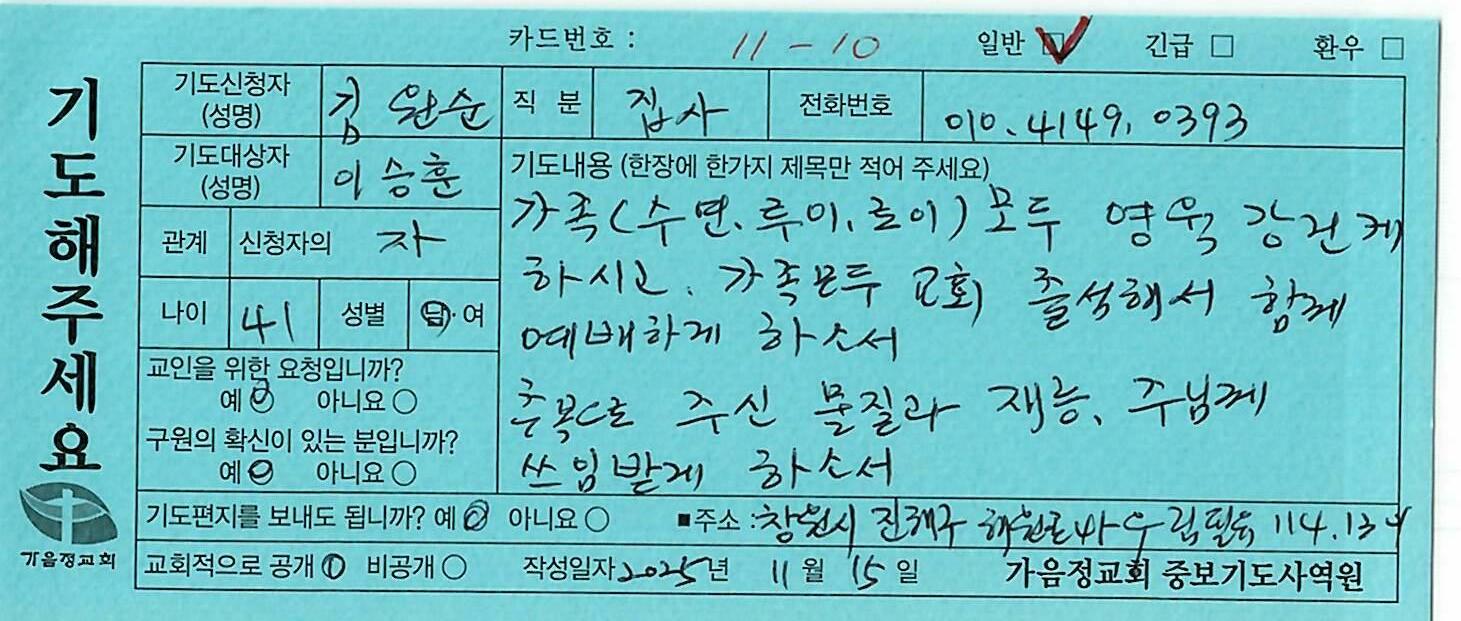 카드번호 : 11-10 일반 ☑ 긴급 □ 환우 □
기도해주세요
기도신청자 (성명) 김완순 직 분 집사 전화번호 010.4149.0393
기도대상자 (성명) 이승훈
관계 신청자의 자
나이 41 성별 남·여
교인을 위한 요청입니까?
예 아니요
구원의 확신이 있는 분입니까?
예 아니요
기도내용 (한장에 한가지 제목만 적어 주세요)
가족(수면.루이.로이) 모두 영육 강건케
하시고. 가족모두 교회 출석해서 함께
예배하게 하소서
축복으로 주신 물질과 재능, 주님께
쓰임받게 하소서
기도편지를 보내도 됩니까? 예 아니요 ■주소 : 창원시 진해구 114.13
교회적으로 공개 비공개 작성일자 2025년 11월 15일 가음정교회 중보기도사역원
가음정교회